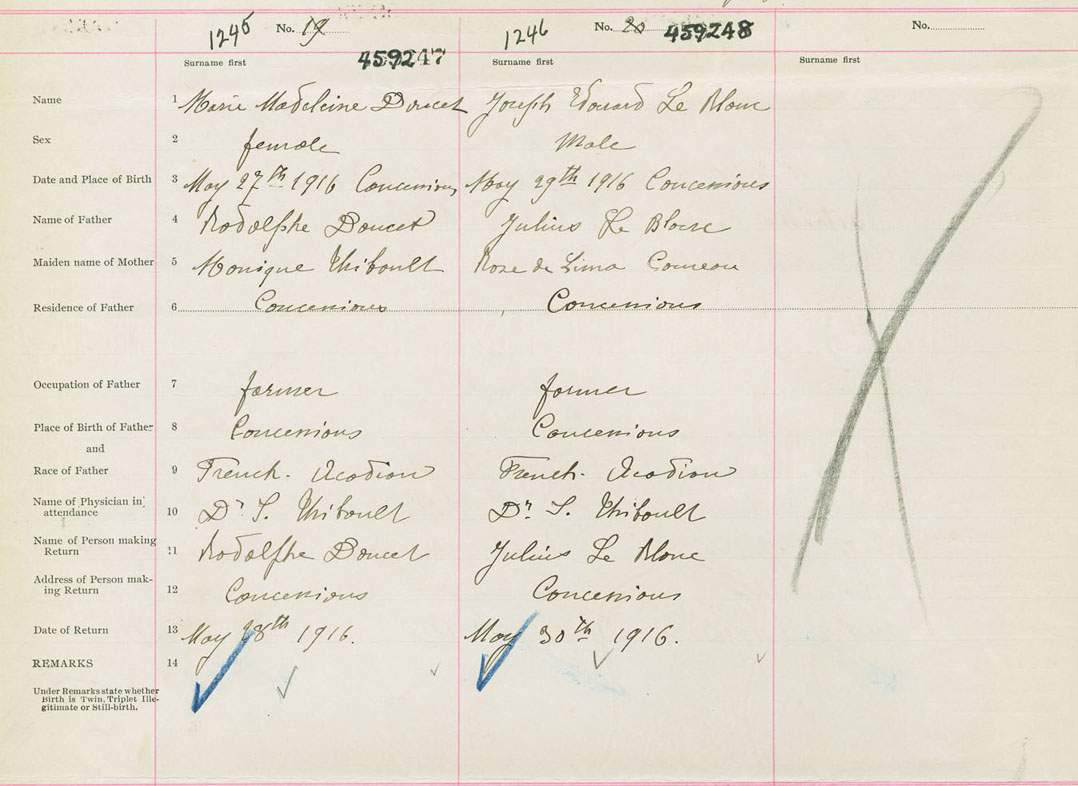 1245 No. 19 1246 No. 20 No.
459247 459248
Surname first Surname first Surname first
Name 1 Marie Madeleine Doucet Joseph Edouard Le Blanc
Sex 2 female Male
Date and Place of Birth 3 May 27th 1916 Concessions May 29th 1916 Concessions
Name of Father 4 Rodolphe Doucet Julius Le Blanc
Maiden name of Mother 5 Monique Thibault Rose de Lima Comeau
Residence of Father 6 Concessions Concessions
Occupation of Father 7 farmer farmer
Place of Birth of Father 8 Concessions Concessions
and
Race of Father 9 French. Acadian French. Acadian
Name of Physician in
attendance 10 Dr S. Thibault Dr S. Thibault
Name of Person making
Return 11 Rodolphe Doucet Julius Le Blanc
Address of Person mak-
ing Return 12 Concessions Concessions
Date of Return 13 May 28th 1916. May 30th 1916.
REMARKS 14
Under Remarks state whether
Birth is Twin, Triplet Ille-
gitimate or Still-birth.